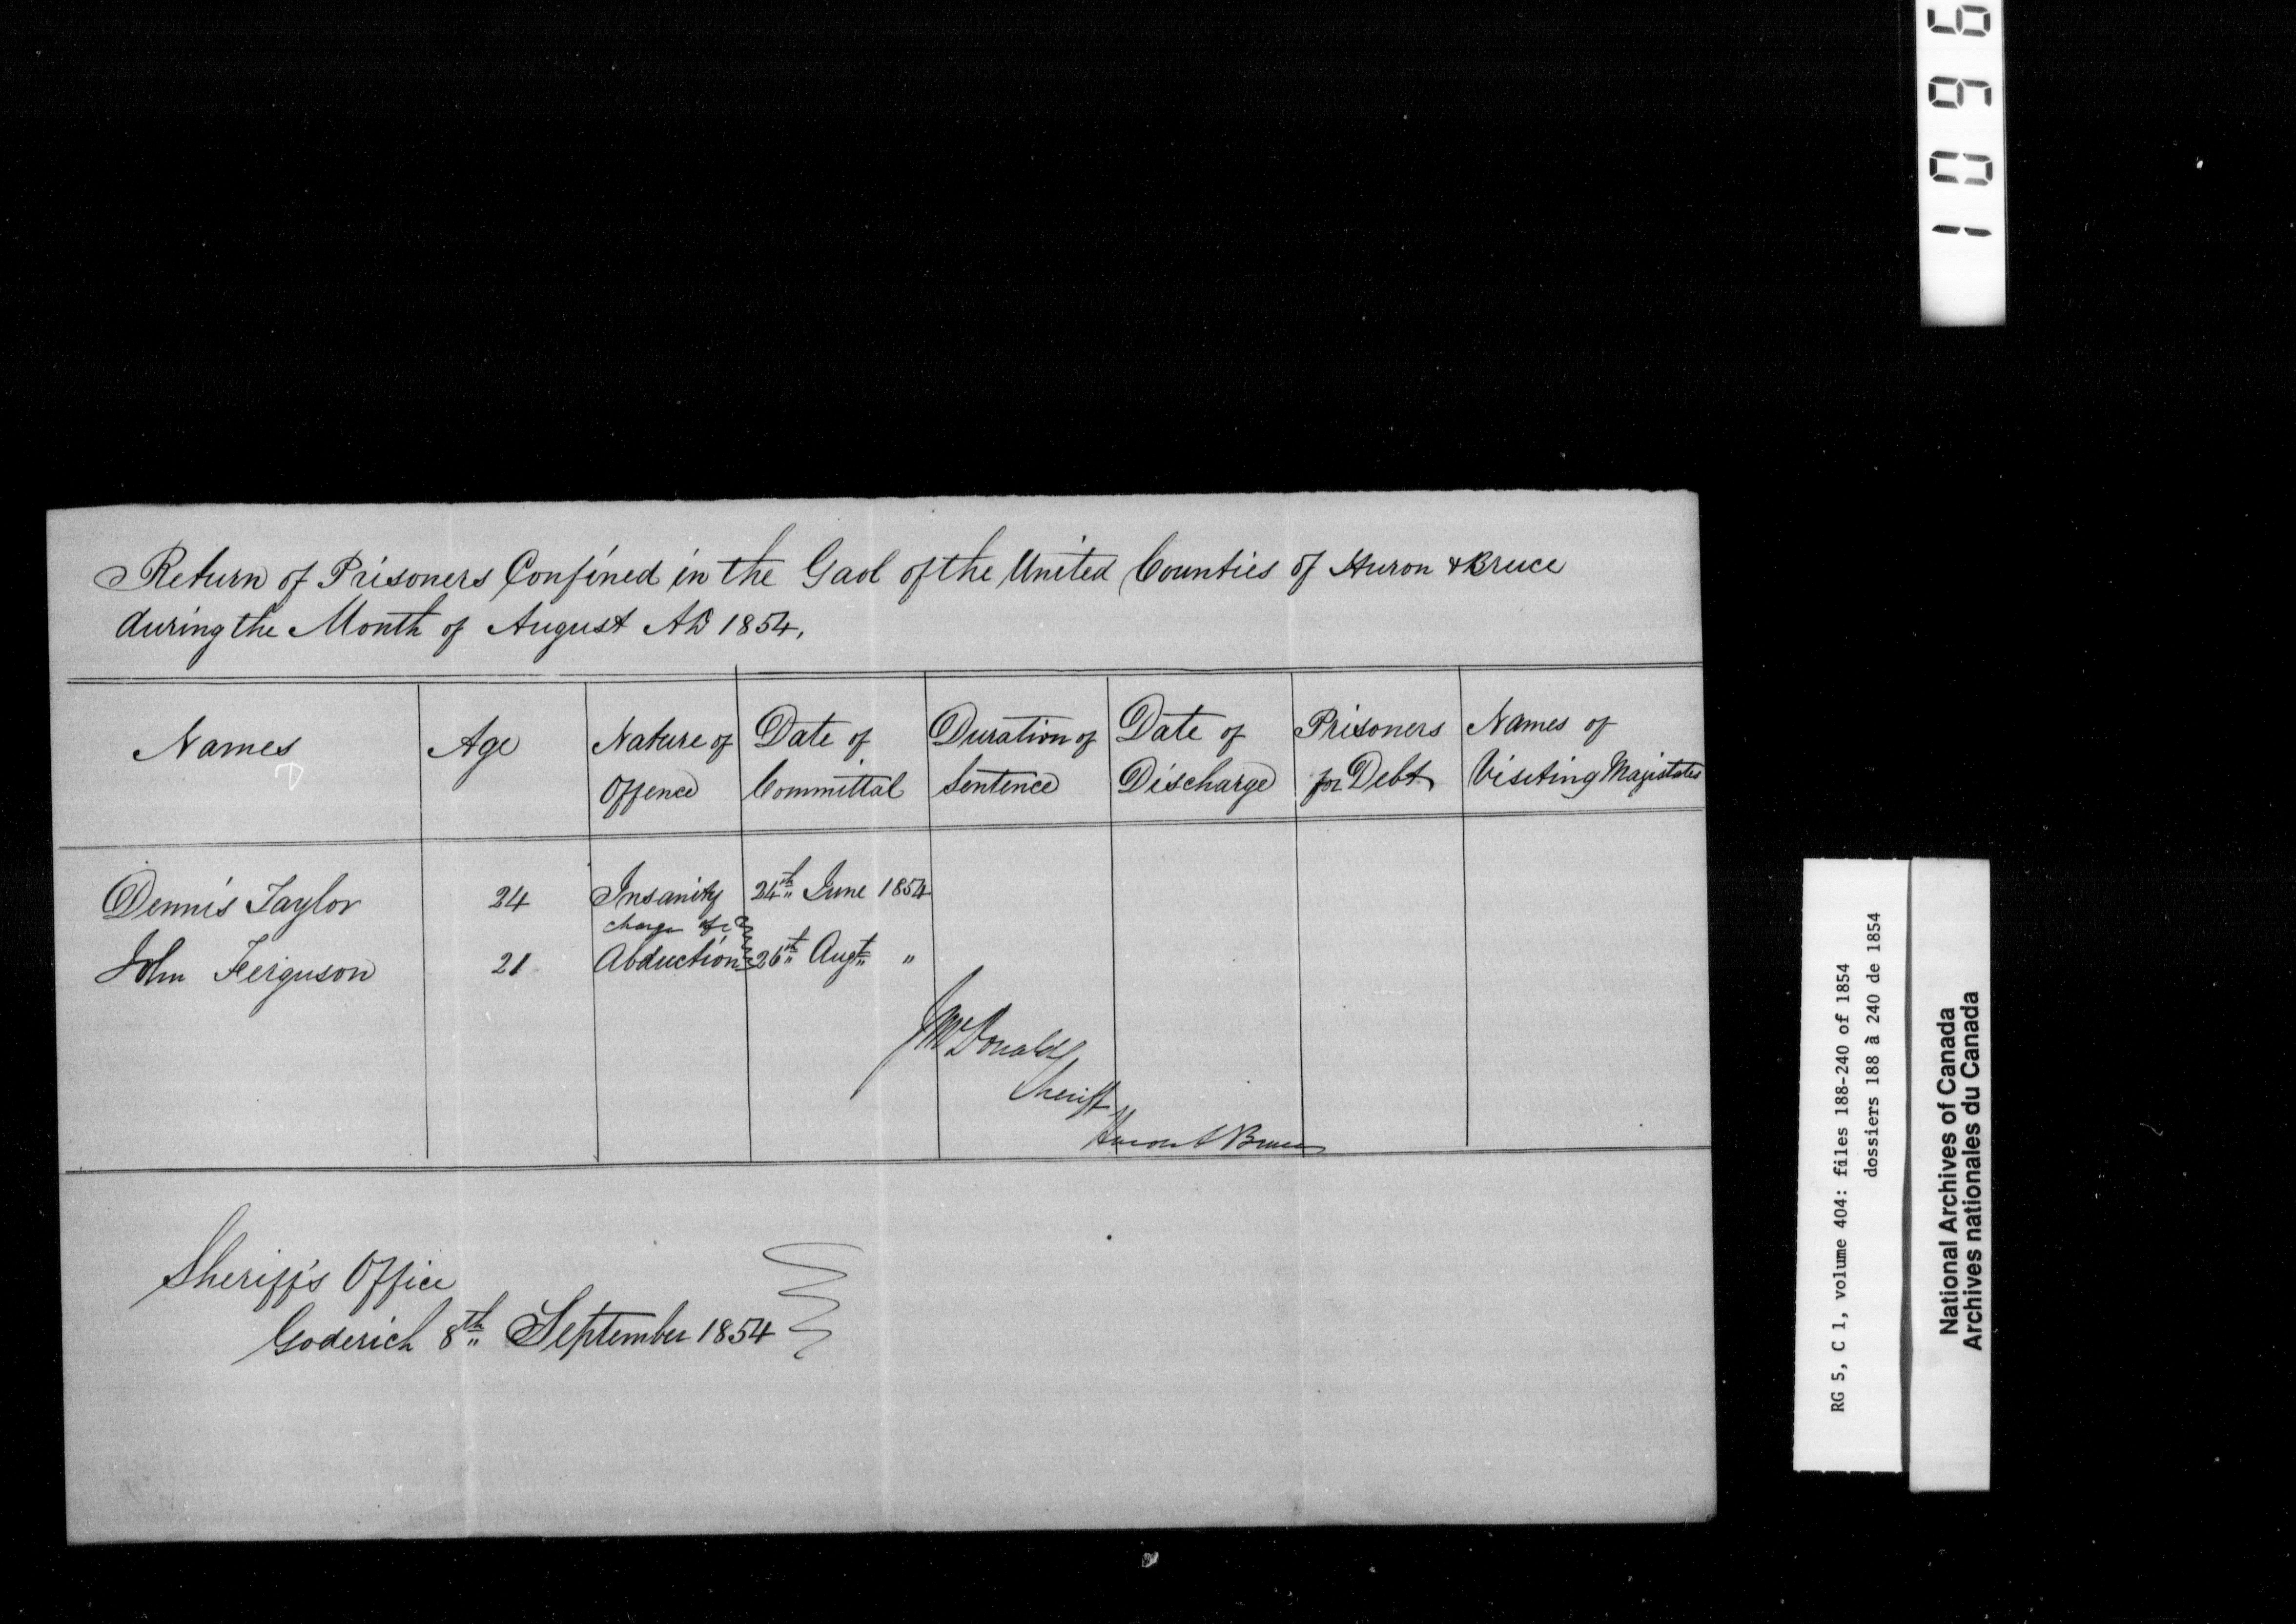 1096
Return of Prisoners Confined in the Gaol of the United Counties of Huron & Bruce
during the Month of August AD 1854,
Names Age Nature of Offence Date of Committal Duration of Sentence Date of Discharge Prisoners for Debt Names of Visiting Magistates
Dennis Taylor 24 Insanity 24th June 1854
charge of
John Ferguson 21 Abduction 26th Augt "
J McDonald
Sheriff
Huron & Bruce
Sheriff's Office
Goderich 8th September 1854
RG 5, C 1, volume 404: files 188-240 of 1854
dossiers 188 à 240 de 1854
National Archives of Canada
Archives nationales du Canada